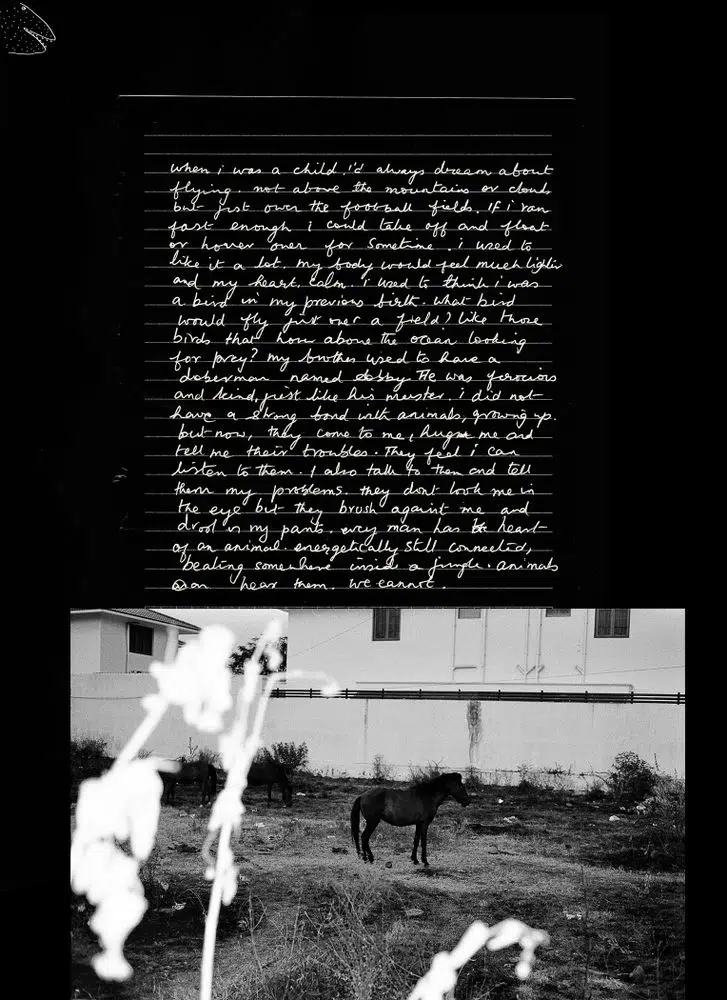 when i was a child. i'd always dream about
flying. not above the mountains or clouds
but just over the football fields. If i ran
fast enough i could take off and float
or hover over for sometime. i used to
like it a lot. my body would feel much lighter
and my heart, calm. i used to think i was
a bird in my previous birth. what bird
would fly just over a field? like those
birds that hover above the ocean looking
for prey? my brother used to have a
doberman named The was ferocious
and kind, just like his master. i did not
have a strong bond with animals, growing up.
but now, they come to me, hug me and
tell me their troubles. They feel i can
listen to them. I also talk to them and tell
them my problems. they dont look me in
the eye but they brush against me and
drool on my pants. every man has the heart
of an animal. energetically still connected,
beating somewhere inside a jungle. animals
can hear them. we cannot.